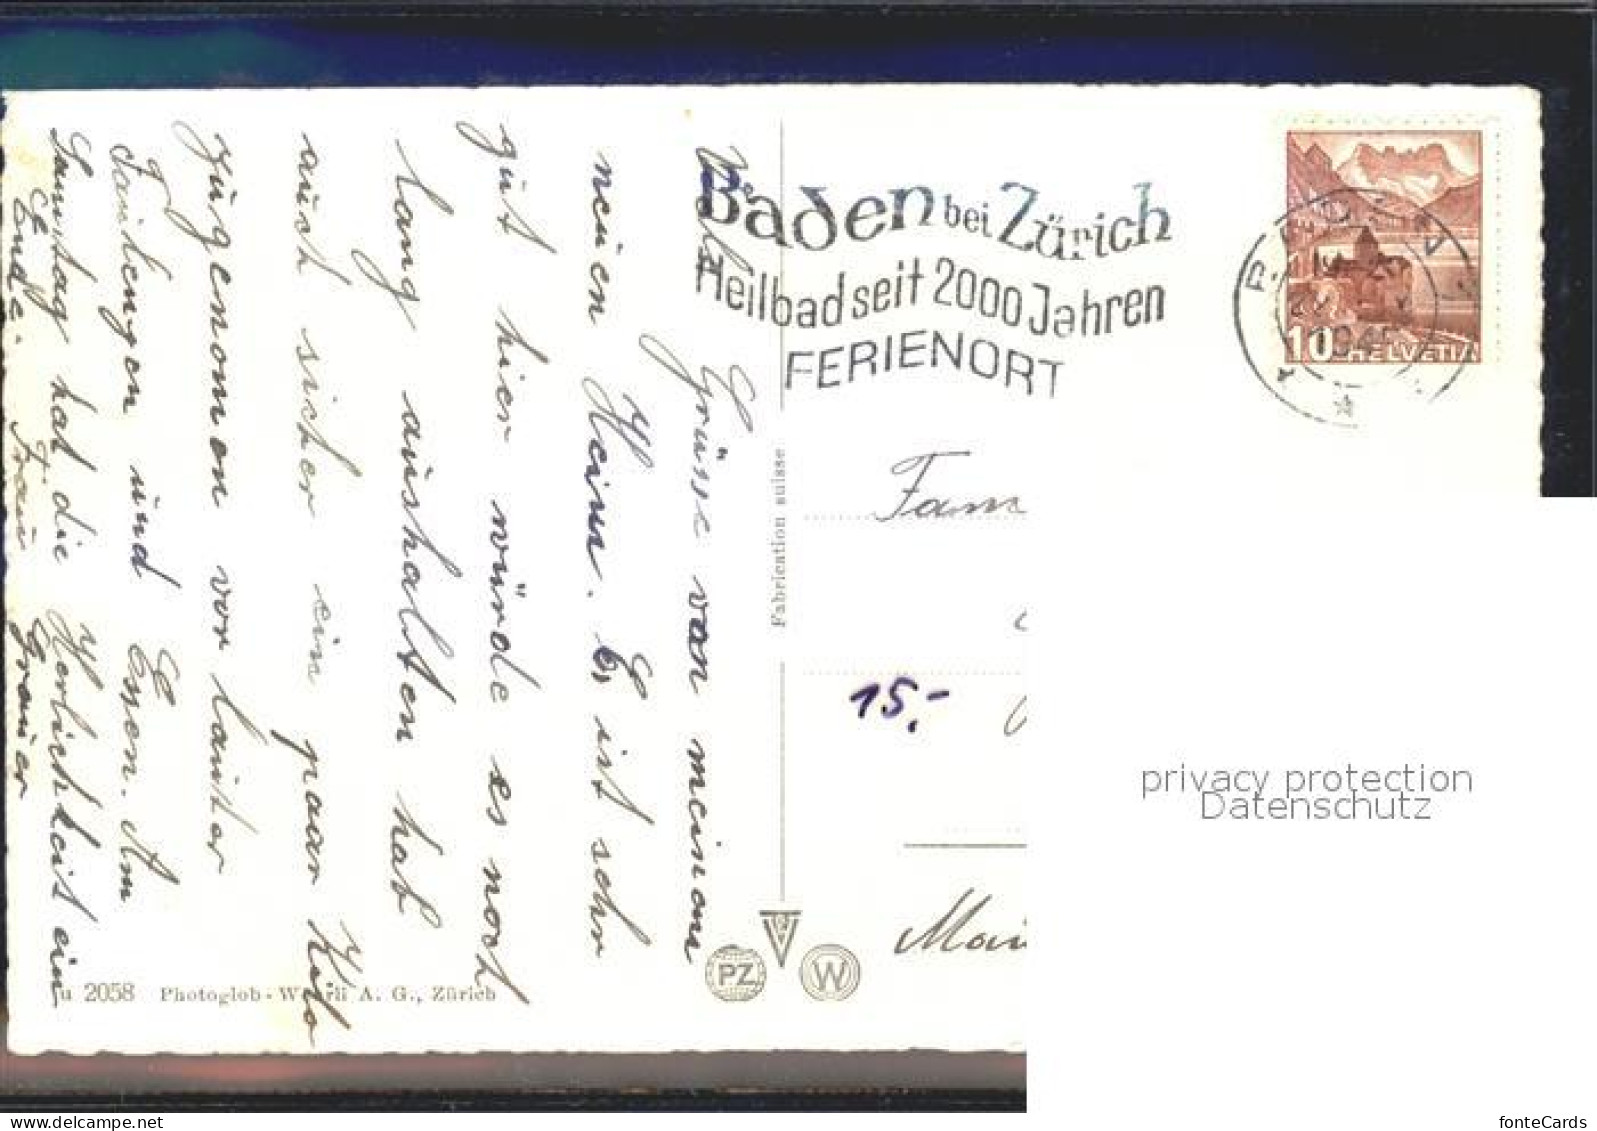 Baden bei Zürich
Heilbad seit 2000 Jahren
FERIENORT
10 HELVETIA
Viele Grüsse von meinem
neuen Heim. Es ist sehr
gut hier würde es noch
lang aushalten hab
auch sicher ein paar Kilo
zugenomen vor lauter
Faulengen und Essen. Am
Samstag hat die Herlichkeit ein
Ende. Frau Grauer
Fam
15.-
Mai
Fabrication suisse
PZ
W
u 2058 Photoglob-Wehrli A. G., Zürich
privacy protection
Datenschutz
fonteCards